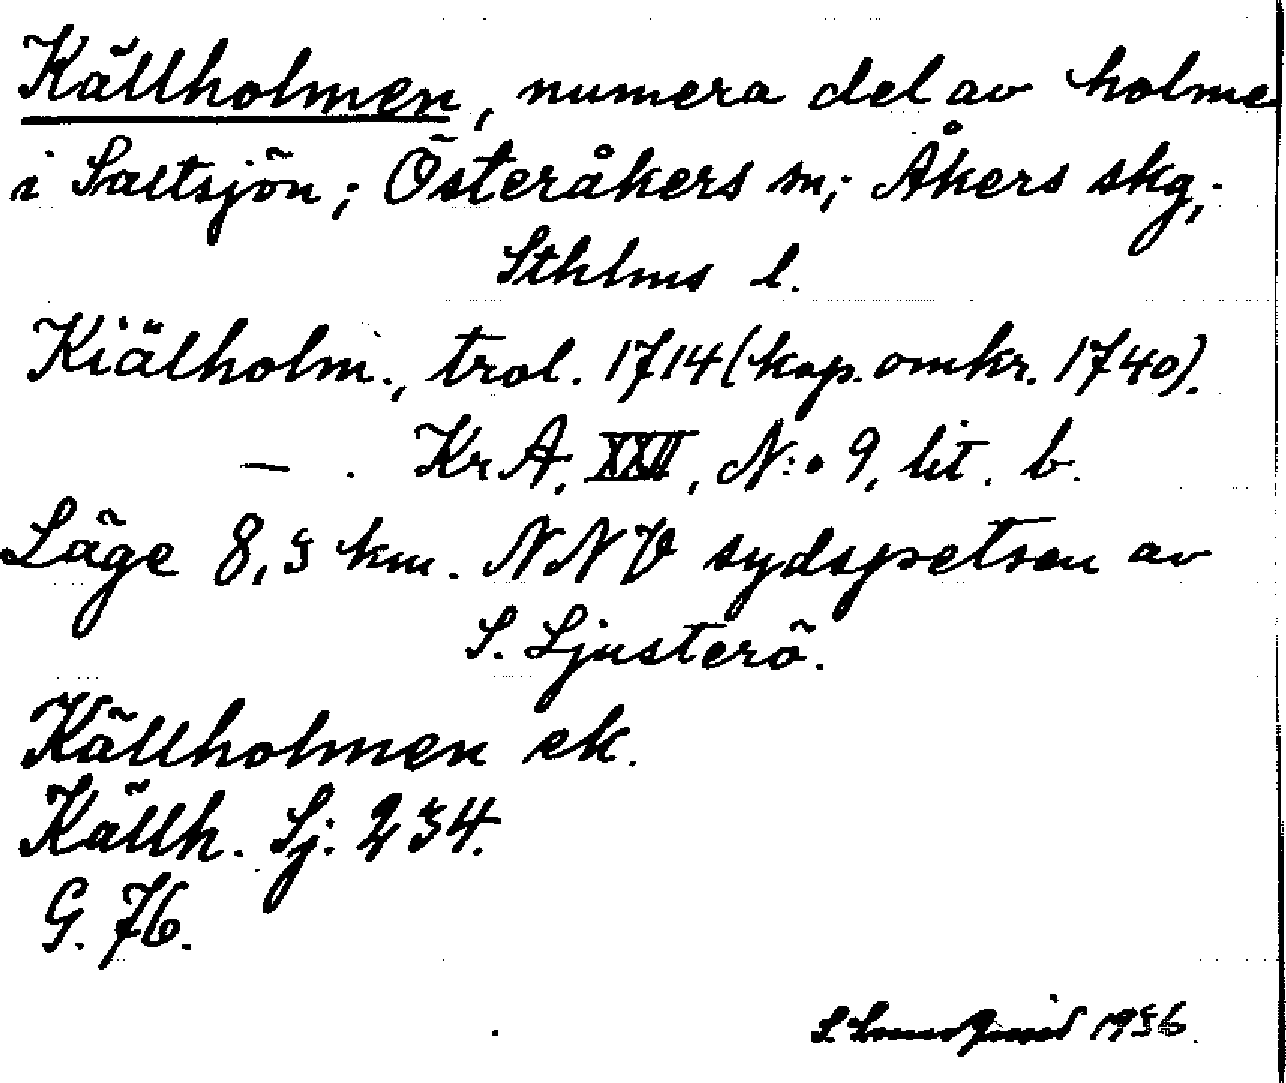 Källholmen, numera del av holme
i Saltsjön; Österåkers sn; Åkers skg;
Sthlms l.
Kiälholm., trol. 1714 (kop. omkr. 1740).
— . KrA, XXII, N:o 9, lit. b.
Läge 8,5 km. NNV sydspetsen av
S. Ljusterö.
Källholmen ek.
Källh. Sj: 234.
G. 76.
1936